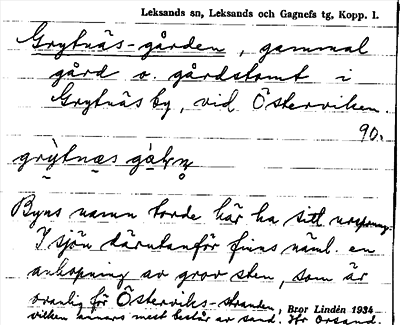 Leksands sn, Leksands och Gagnefs tg, Kopp. l.
Grytnäs-gården, gammal
gård o. gårdstomt i
Grytnäs by, vid Österviken.
90.
Byns namn torde här ha sitt ursprung.
I sjön därutanför finns näml. en
anhopning av grov sten, som är
ovanlig för Österviks-stranden, Bror Lindén 1934
vilken annars mest består av sand. Jfr Orsand.